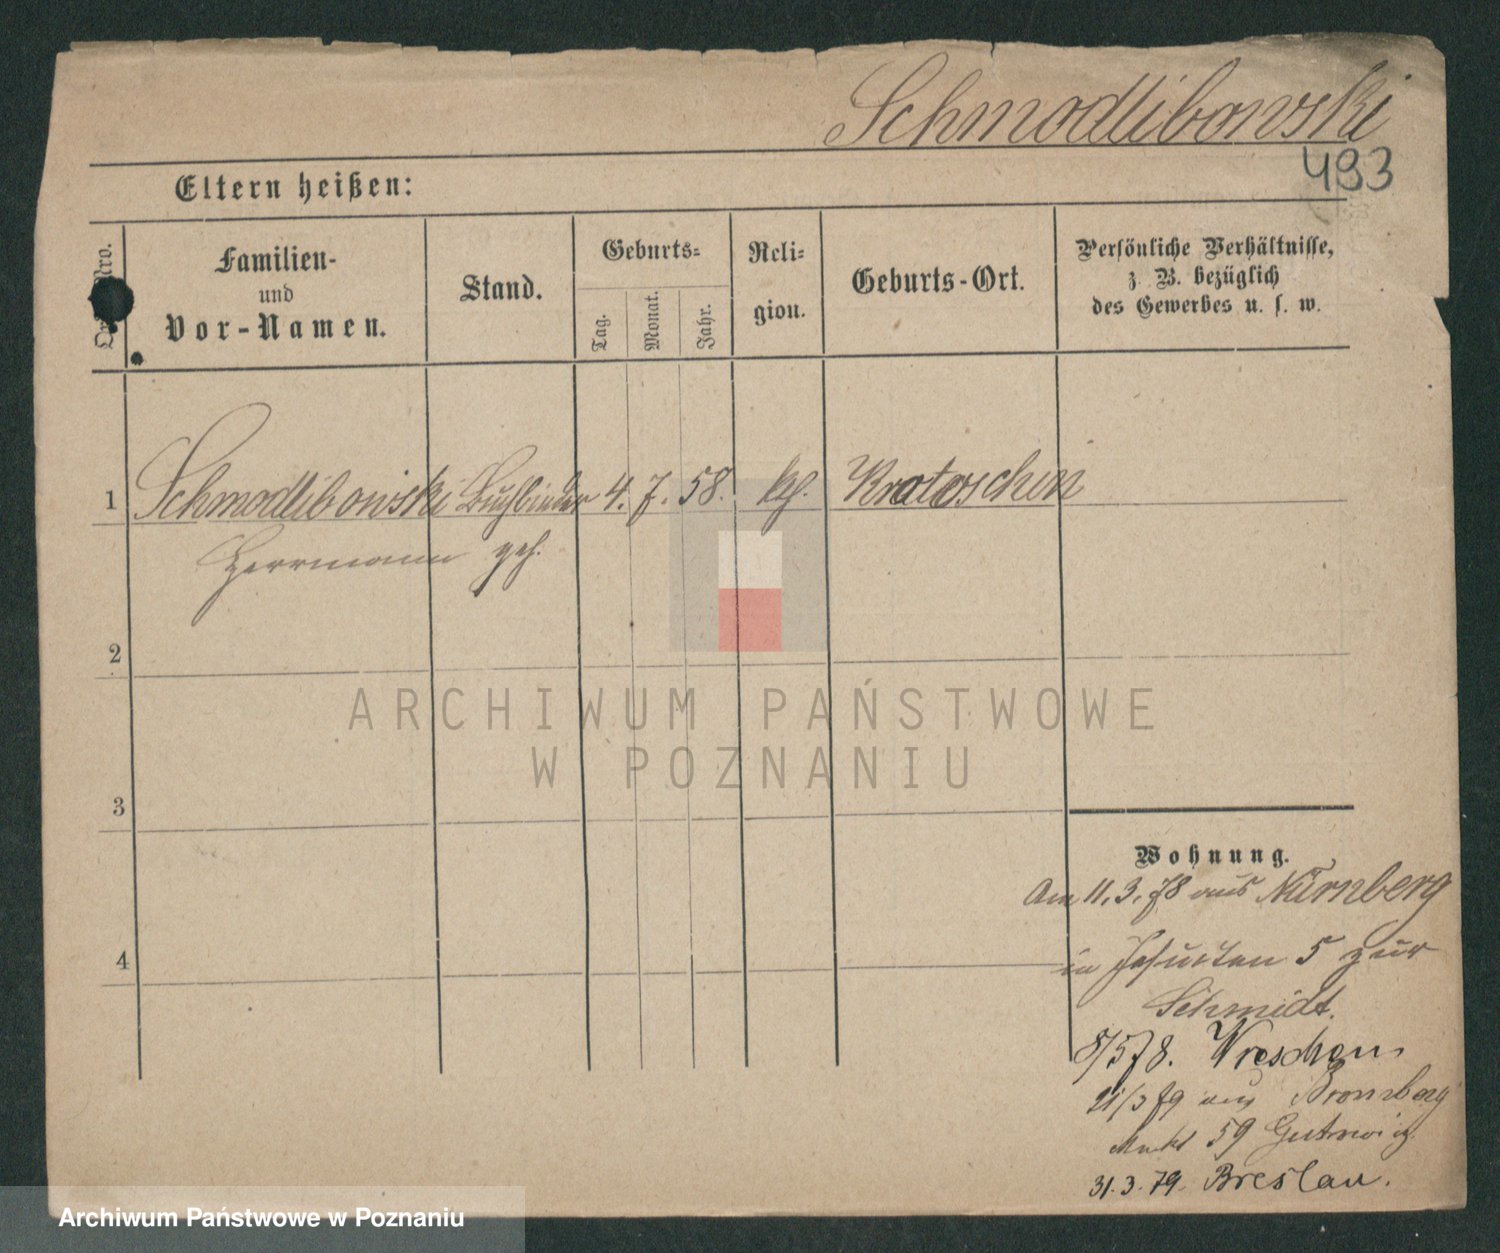 Schmodlibowski
493
Eltern heißen:
Nro.
Familien-
und
Vor-Namen.
Stand.
Geburts-
Tag.
Monat.
Jahr.
Reli-
gion.
Geburts-Ort.
Persönliche Verhältnisse,
z. B. bezüglich
des Gewerbes u. s. w.
1 Schmodlibowski Buchbinder 4. 7. 58. kth. Krotoschin
Herrmann geh.
2
3
4
Wohnung.
Am 11.3.78 aus Nürnberg
in Jesuiten 5 zur
Schmidt.
8/5 78. Wreschen
21/3 79 aus Bromberg
Markt 59 Gutowicz
31.3.79. Breslau.
ARCHIWUM PAŃSTWOWE
W POZNANIU
Archiwum Państwowe w Poznaniu